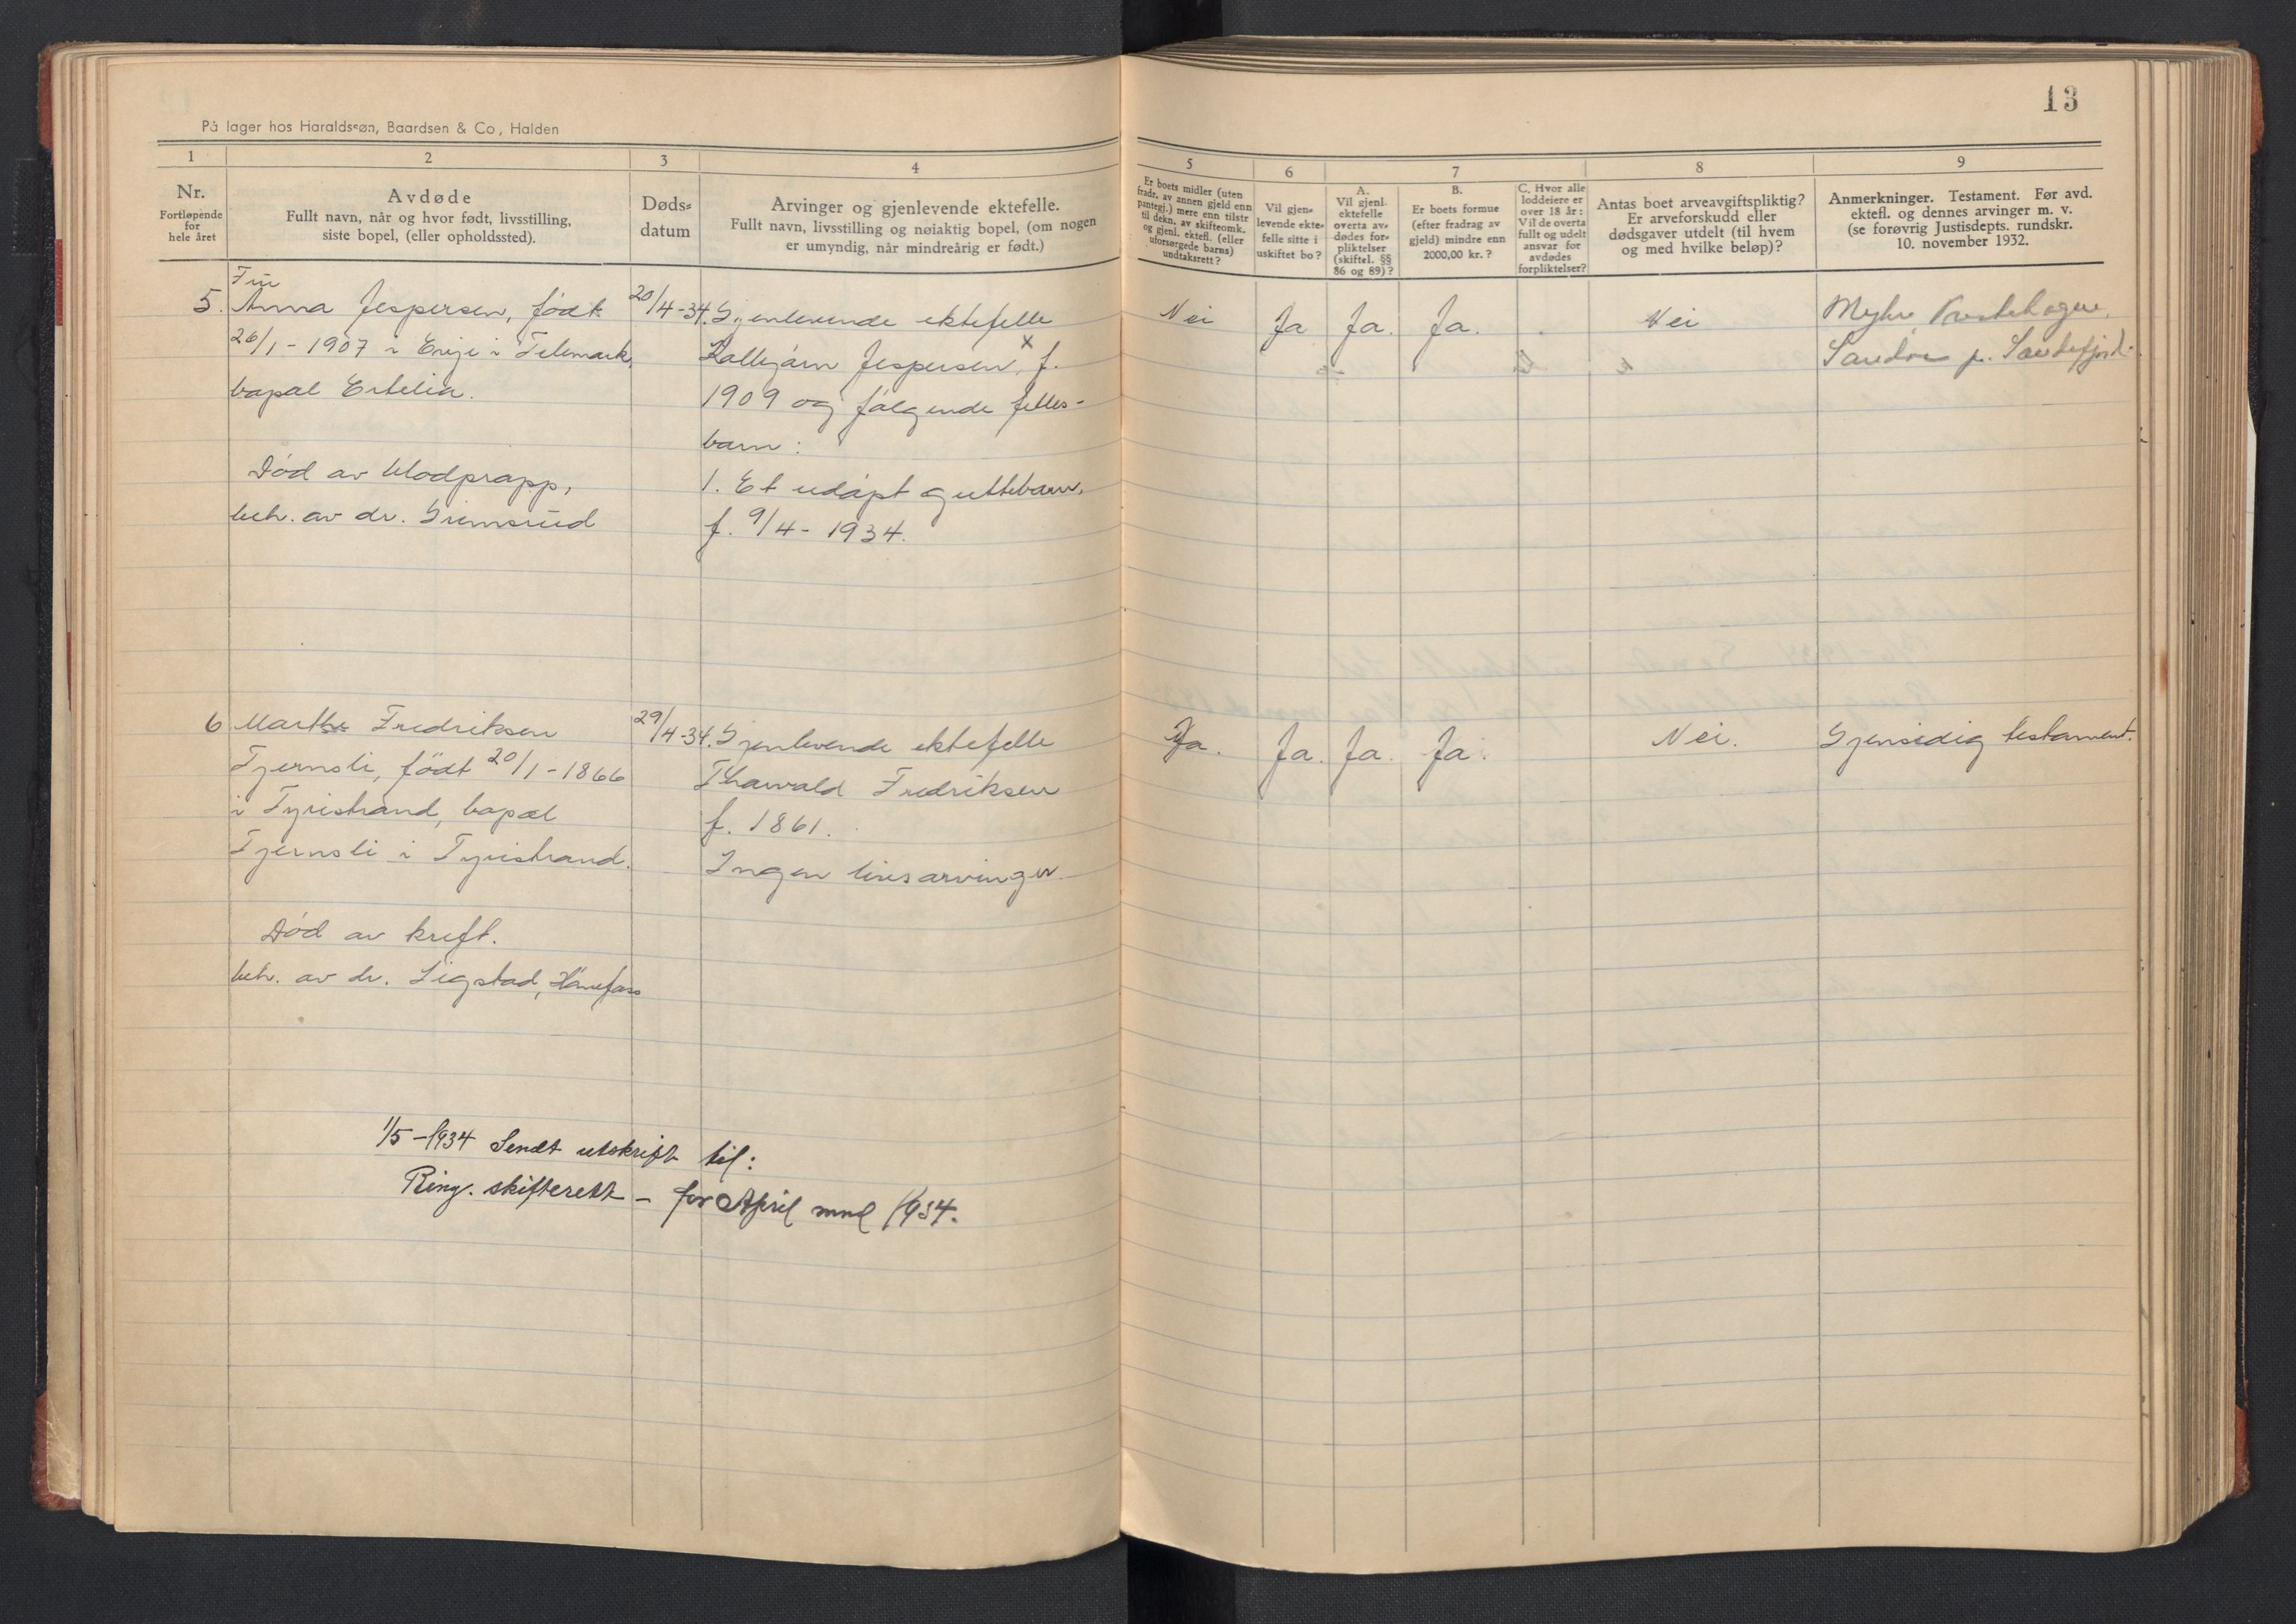 13
På lager hos Haraldssøn, Baardsen & Co, Halden
1
2
3
4
5
6
7
8
9
Nr.
Fortløpende
for
hele året
Avdøde
Fullt navn, når og hvor født, livsstilling,
siste bopel, (eller opholdssted).
Døds-
datum
Arvinger og gjenlevende ektefelle.
Fullt navn, livsstilling og nøiaktig bopel, (om nogen
er umyndig, når mindreårig er født.)
Er boets midler (uten
fradr. av annen gjeld enn
pantegj.) mere enn tilstr
til dekn. av skifteomk.
og gjenl. ektefl. (eller
uforsørgede barns)
undtaksrett?
Vil gjen-
levende ekte-
felle sitte i
uskiftet bo?
A.
Vil gjenl.
ektefelle
overta av-
dødes for-
pliktelser
(skiftel. §§
86 og 89)?
B.
Er boets formue
(efter fradrag av
gjeld) mindre enn
2000,00 kr.?
C. Hvor alle
loddeiere er
over 18 år:
Vil de overta
fullt og udelt
ansvar for
avdødes
forpliktelser?
Antas boet arveavgiftspliktig?
Er arveforskudd eller
dødsgaver utdelt (til hvem
og med hvilke beløp)?
Anmerkninger. Testament. Før avd.
ektefl. og dennes arvinger m. v.
(se forøvrig Justisdepts. rundskr.
10. november 1932.
Fru
5. Anna Jespersen, født
26/1 - 1907 i Telemark,
bopæl Ertelia.
Død av blodpropp,
beh. av dr. Grimsrud
20/4-34.
Gjenlevende ektefelle
x
Jespersen, f.
1909 og følgende felles-
barn:
1. Et udøpt guttebarn,
f. 9/4 - 1934.
Nei
Ja
Ja.
Ja.
Nei
Sandefjord.
6 Marthe Fredriksen
Tjernsli, født 20/1 - 1866
i Tyristrand, bopæl
Tjernsli i Tyristrand.
Død av kreft.
beh. av dr. Sigstad, Hønefoss
29/4-34.
Gjenlevende ektefelle
Thorvald Fredriksen
f. 1861.
Ingen livsarvinger.
Ja.
Ja.
Ja.
Ja.
Nei.
Gjensidig testament.
1/5 - 1934 Sendt utskrift til:
Ring. skifterett - for April mnd 1934.